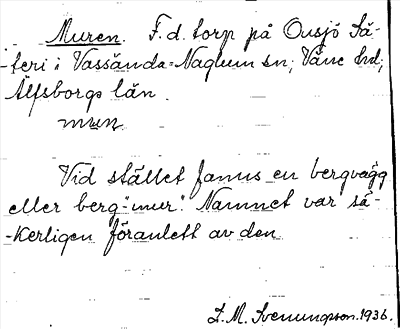 Muren. F.d. torp på Onsjö Sä-
-teri i Vassända-Naglum sn; Väne hd;
Älfsborgs län.
mun
Vid stället fanns en bergvägg
eller berg-"mur". Namnet var sä-
-kerligen föranlett av den
L.M. Svenungsson. 1936.